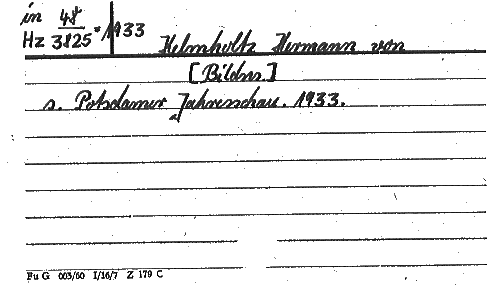 in 4°
Hz 3825 * 1933
Helmholtz Hermann von
[Bildn.]
s. Potsdamer Jahresschau. 1933.
Fu G 003/60 I/16/7 Z 179 C